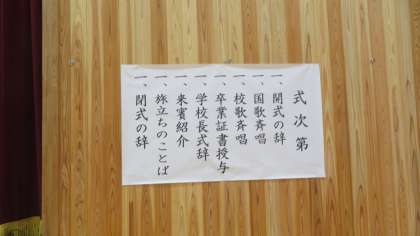 式次第
一、開式の辞
一、国歌斉唱
一、校歌斉唱
一、卒業証書授与
一、学校長式辞
一、来賓紹介
一、旅立ちのことば
一、閉式の辞